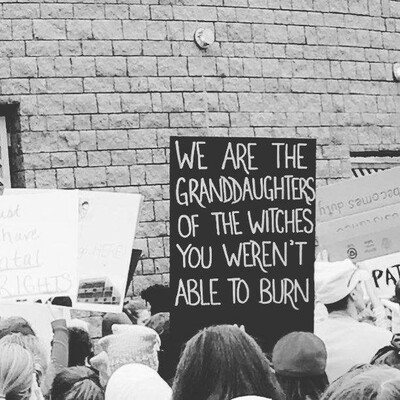 WE ARE THE
GRANDDAUGHTERS
OF THE WITCHES
YOU WEREN'T
ABLE TO BURN
have
RIGHTS
becomes duty
PAT